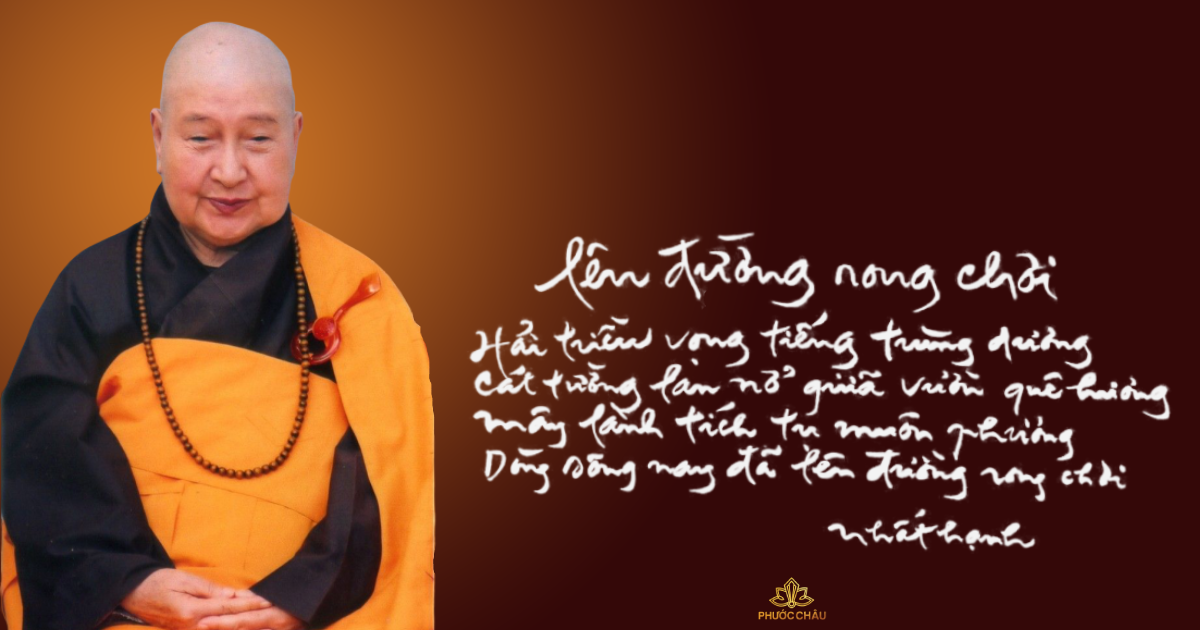 lên đường rong chơi
Hải triều vọng tiếng trùng dương
Cát tường lan nở giữa vườn quê hương
Mây lành tích tụ muôn phương
Dòng sông nay đã lên đường rong chơi
Nhất Hạnh
PHƯỚC CHÂU